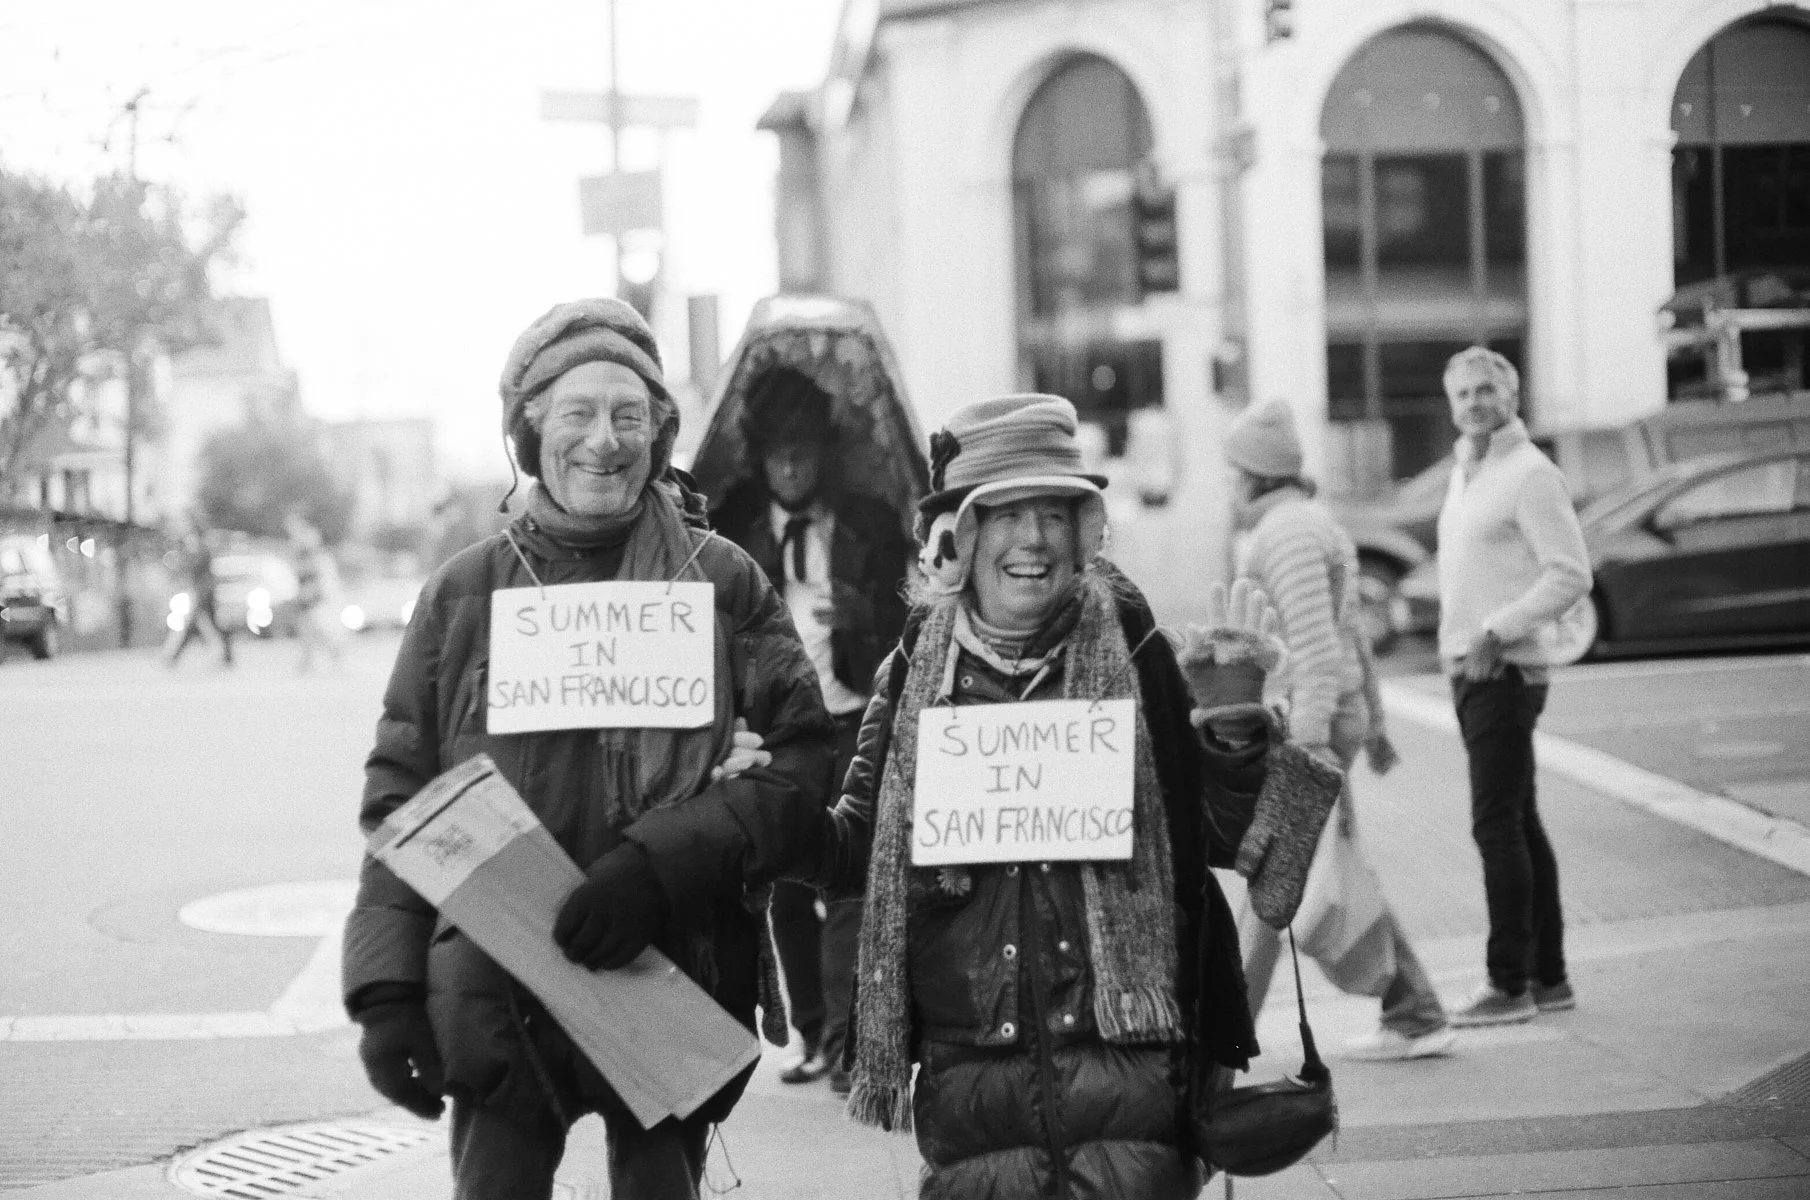 SUMMER
IN
SAN FRANCISCO
SUMMER
IN
SAN FRANCISCO